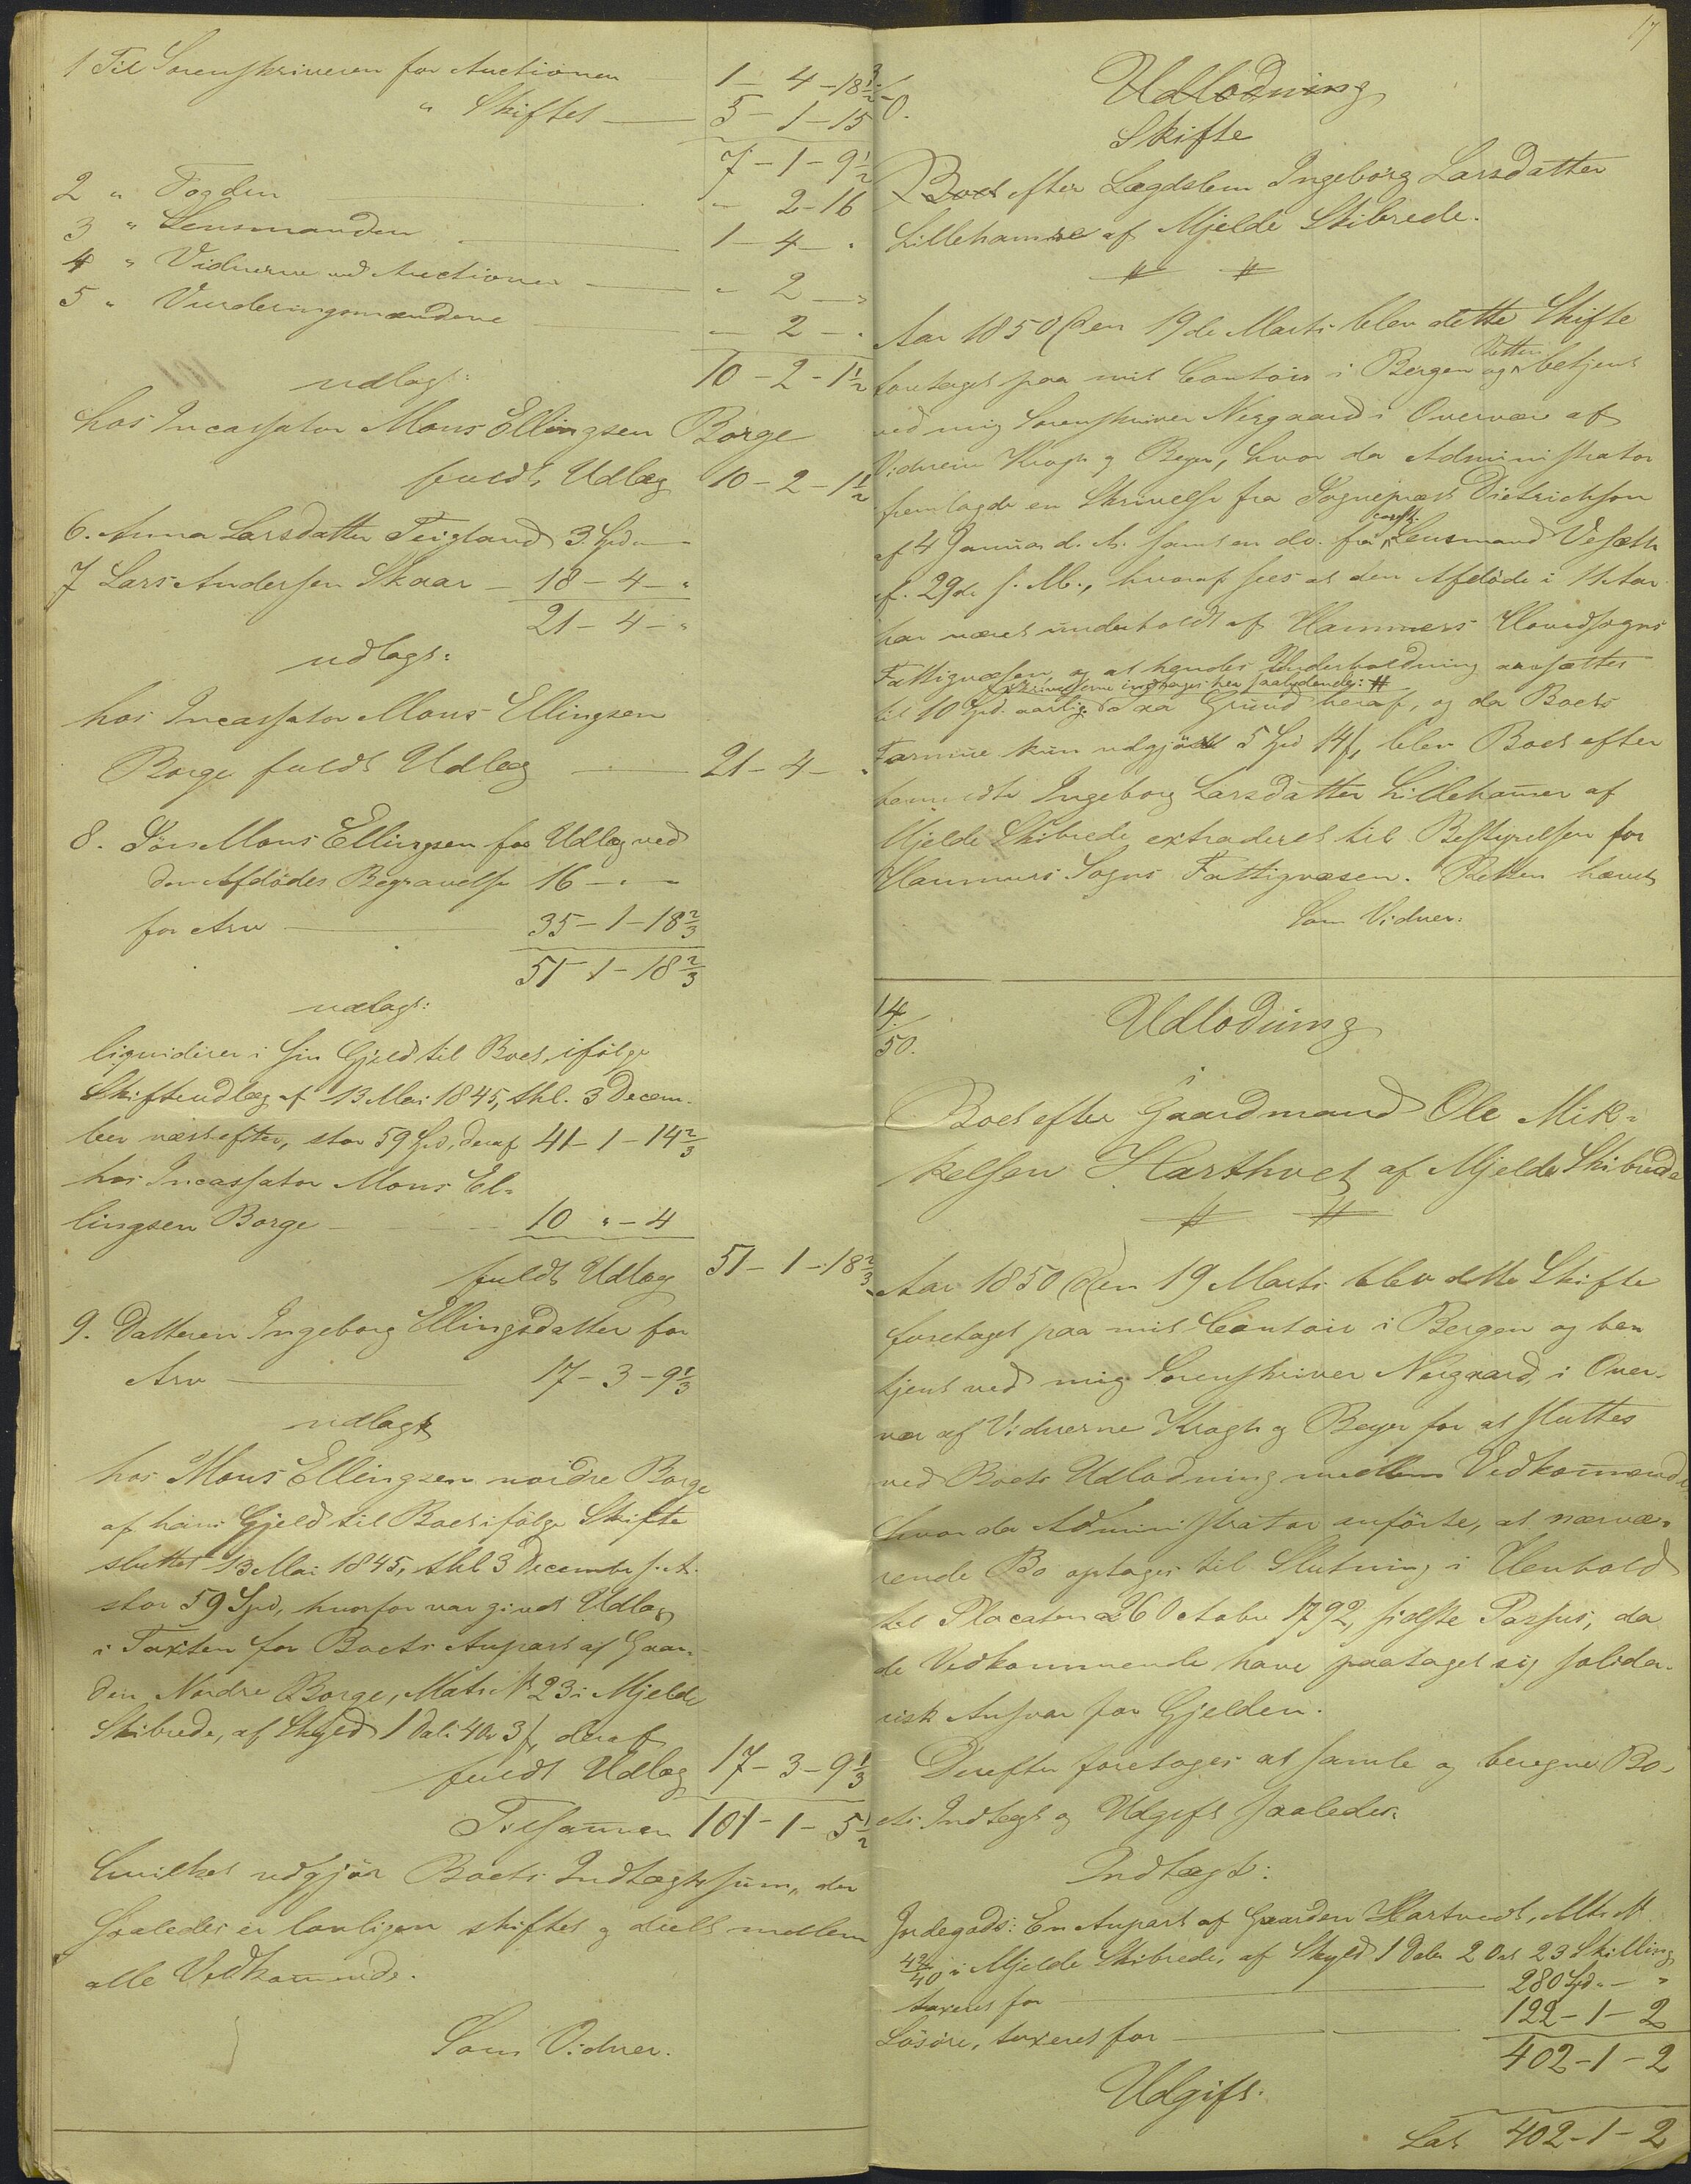 1 Til Sorenskriveren for Auctionen — 1 - 4 - 18½
" Skiftet — 5 - 1 - 15
7 - 1 - 9½
2 " Fogden — " 2 - 16
3 " Lensmanden — 1 - 4 - "
4 " Vidnerne ved Auctionen — " 2 - "
5 " Vurderingsmændene — " 2 - "
10 - 2 - 1½
udlagt:
hos Incassator Mons Ellingsen Borge
fuldt Udlæg 10 - 2 - 1½
6. Anna Larsdatter Teigland 3 Spd " -
7 Lars Andersen Skaar - 18 - 4 - "
21 - 4 - "
udlagt:
hos Incassator Mons Ellingsen
Borge fuldt Udlæg — 21 - 4 - "
8. Søn Mons Ellingsen for Udlæg ved
den Afdödes Begravelse 16 - " -
for Arv — 35 - 1 - 18⅔
51 - 1 - 18⅔
udlagt:
liquiderer i sin Gjeld til Boet, ifølge
Skifteudlæg af 13 Mai 1845, thl. 3 Decem-
ber næstefter, stor 59 Spd, deraf 41 - 1 - 14⅔
hos Incassator Mons El-
lingsen Borge — 10 " - 4
fuldt Udlæg 51 - 1 - 18⅔
9. Datteren Ingeborg Ellingsdatter for
Arv — 17 - 3 - 9⅓
udlagt
hos Mons Ellingsen nordre Borge
af hans Gjeld til Boet ifølge Skifte
sluttet 13 Mai 1845, thl 3 December s. A.
stor 59 Spd, hvorfor var givet Udlæg
i Taxten for Boets Anpart af Gaar-
den Nordre Borge, Matr. No 23 i Mjelde
Skibrede, af Skyld 1 Daler 4 Ort 3 s, deraf
fuldt Udlæg 17 - 3 - 9⅓
Tilsammen 101 - 1 - 5½
hvilket udgjør Boets Indtægtssum, der
saaledes er lovligen skiftet og deelt mellem
alle Vedkommende.
Som Vidner.
17
Udlodning
Skifte
Boet efter Lægdslem Ingeborg Larsdatter
Lillehammer af Mjelde Skibrede.
Aar 1850 den 19de Marts blev dette Skifte
foretaget paa mit Contoir i Bergen og Retten betjent
ved mig Sorenskriver Nergaard i Overvær af
Vidnerne Krogh og Beyer, hvor da Administrator
fremlagde en Skrivelse fra Sognepræst Dietrichson
af 4 Januar d. A. samt en do. fra const. Lensmand Vefæth
af 29de s. M., hvoraf sees at den Afdöde i 11 Aar
har været underholdt af Hammers Hovedsogns
Fattigvæsen og at hendes Underholdning ansættes
Skrivelserne indtages her saalydende: #
til 10 Spd. aarlig. Paa Grund heraf, og da Boets
Formue kun udgjør 5 Spd 14 s, blev Boet efter
bemeldte Ingeborg Larsdatter Lillehamer af
Mjelde Skibrede extraderet til Bestyrelsen for
Hammers Sogns Fattigvæsen. Retten hævet
Som Vidner.
14/50.
Udlodning
i
Boet efter Gaardmand Ole Mik-
kelsen Harthvet af Mjelde Skibrede
Aar 1850 den 19 Marts blev dette Skifte
foretaget paa mit Contoir i Bergen og be-
tjent ved mig Sorenskriver Nergaard, i Over-
vær af Vidnerne Krogh og Beyer for at sluttes
ved Boets Udlodning mellem Vedkommende,
hvor da Administrator anførte, at nærvæ-
rende Bo optages til Slutning i Henhold
til Placaten 26 October 1792, sidste Passus, da
de Vedkommende have paataget sig solida-
risk Ansvar for Gjelden.
Derefter foretages at samle og beregne Bo-
ets Indtægt og Udgift saaledes:
Indtægt:
Jordegods: En Anpart af Gaarden Hartvedt, Mtr. No
i Mjelde Skibrede, af Skyld 1 Daler 2 Ort 23 Skilling
taxeret for — 280 Spd " - "
Løsøre, taxeret for — 122 - 1 - 2
402 - 1 - 2
Udgift.
Lat 402 - 1 - 2